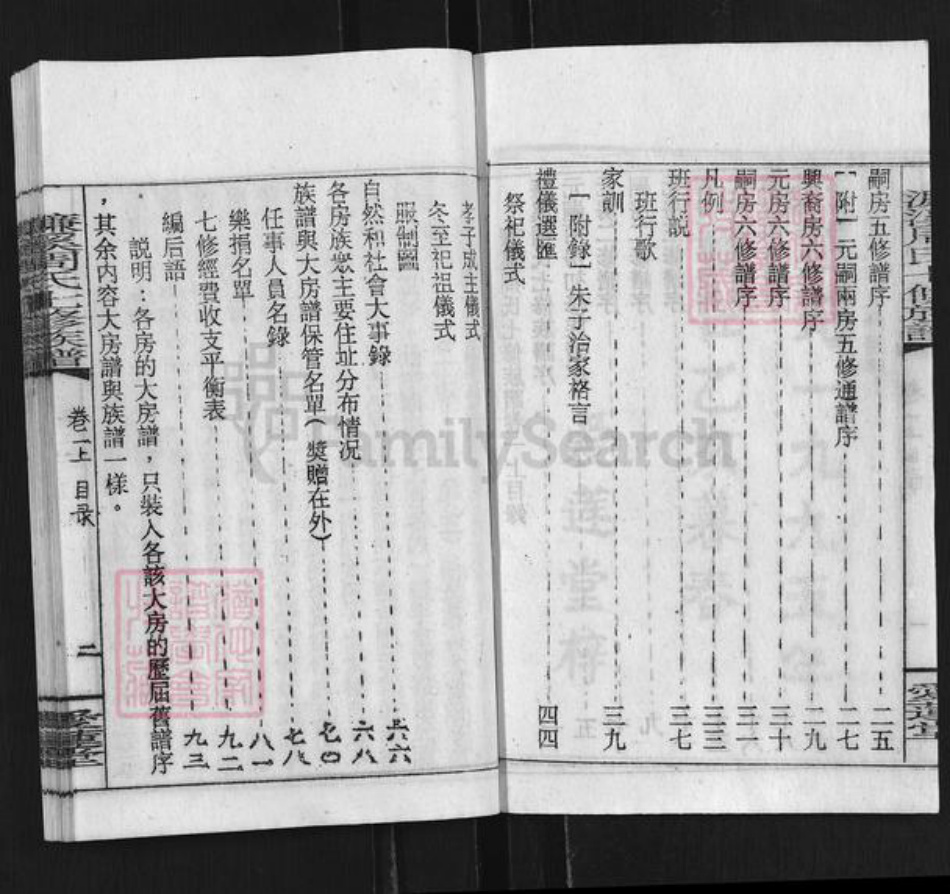 嗣房五修譜序 二五
〔附〕元嗣兩房五修通譜序 二七
興裔房六修譜序 二九
元房六修譜序 三十
嗣房六修譜序 三一
凡例 三三
班行説 三七
班行歌
家訓 三九
〔附錄〕朱子治家格言
禮儀選匯 四四
祭祀儀式
孝子成主儀式
冬至祀祖儀式
服制圖 六六
自然和社會大事錄 六八
各房族眾主要住址分布情况 七〇
族譜與大房譜保管名單(獎贈在外) 七八
任事人員名錄 八一
樂捐名單 九二
七修經費收支平衡表 九三
編后語
説明:各房的大房譜,只裝入各該大房的歷屆舊譜序
,其余内容大房譜與族譜一樣。
濂溪周氏七修族譜
卷一上 目录
二
愛蓮堂
FamilySearch